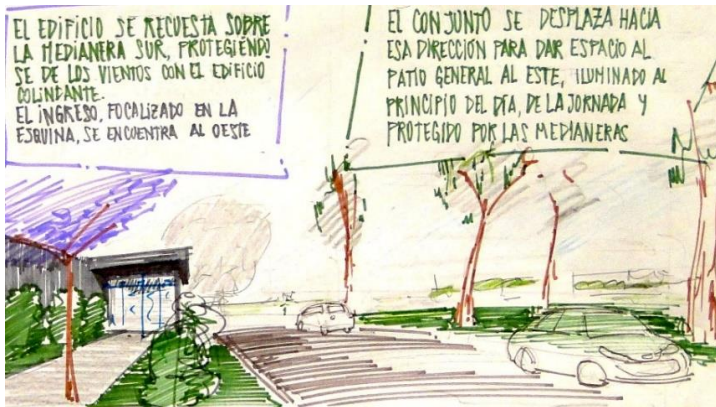 EL EDIFICIO SE RECUESTA SOBRE
LA MEDIANERA SUR, PROTEGIÉNDO
SE DE LOS VIENTOS CON EL EDIFICIO
COLINDANTE.
EL INGRESO, FOCALIZADO EN LA
ESQUINA, SE ENCUENTRA AL OESTE
EL CONJUNTO SE DESPLAZA HACIA
ESA DIRECCIÓN PARA DAR ESPACIO AL
PATIO GENERAL AL ESTE, ILUMINADO AL
PRINCIPIO DEL DÍA, DE LA JORNADA Y
PROTEGIDO POR LAS MEDIANERAS